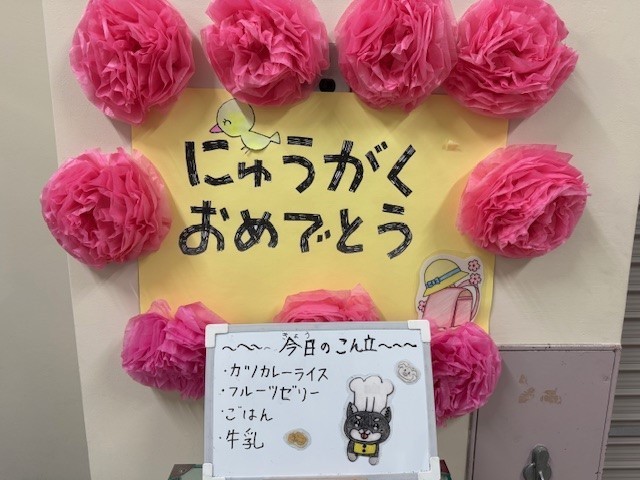 にゅうがく
おめでとう
～～～今日のこん立～～～
きょう
・カツカレーライス
・フルーツゼリー
・ごはん
・牛乳